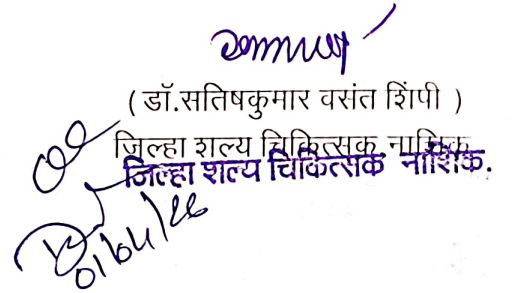 ( डॉ.सतिषकुमार वसंत शिंपी )
जिल्हा शल्य चिकित्सक, नाशिक
जिल्हा शल्य चिकित्सक नाशिक.